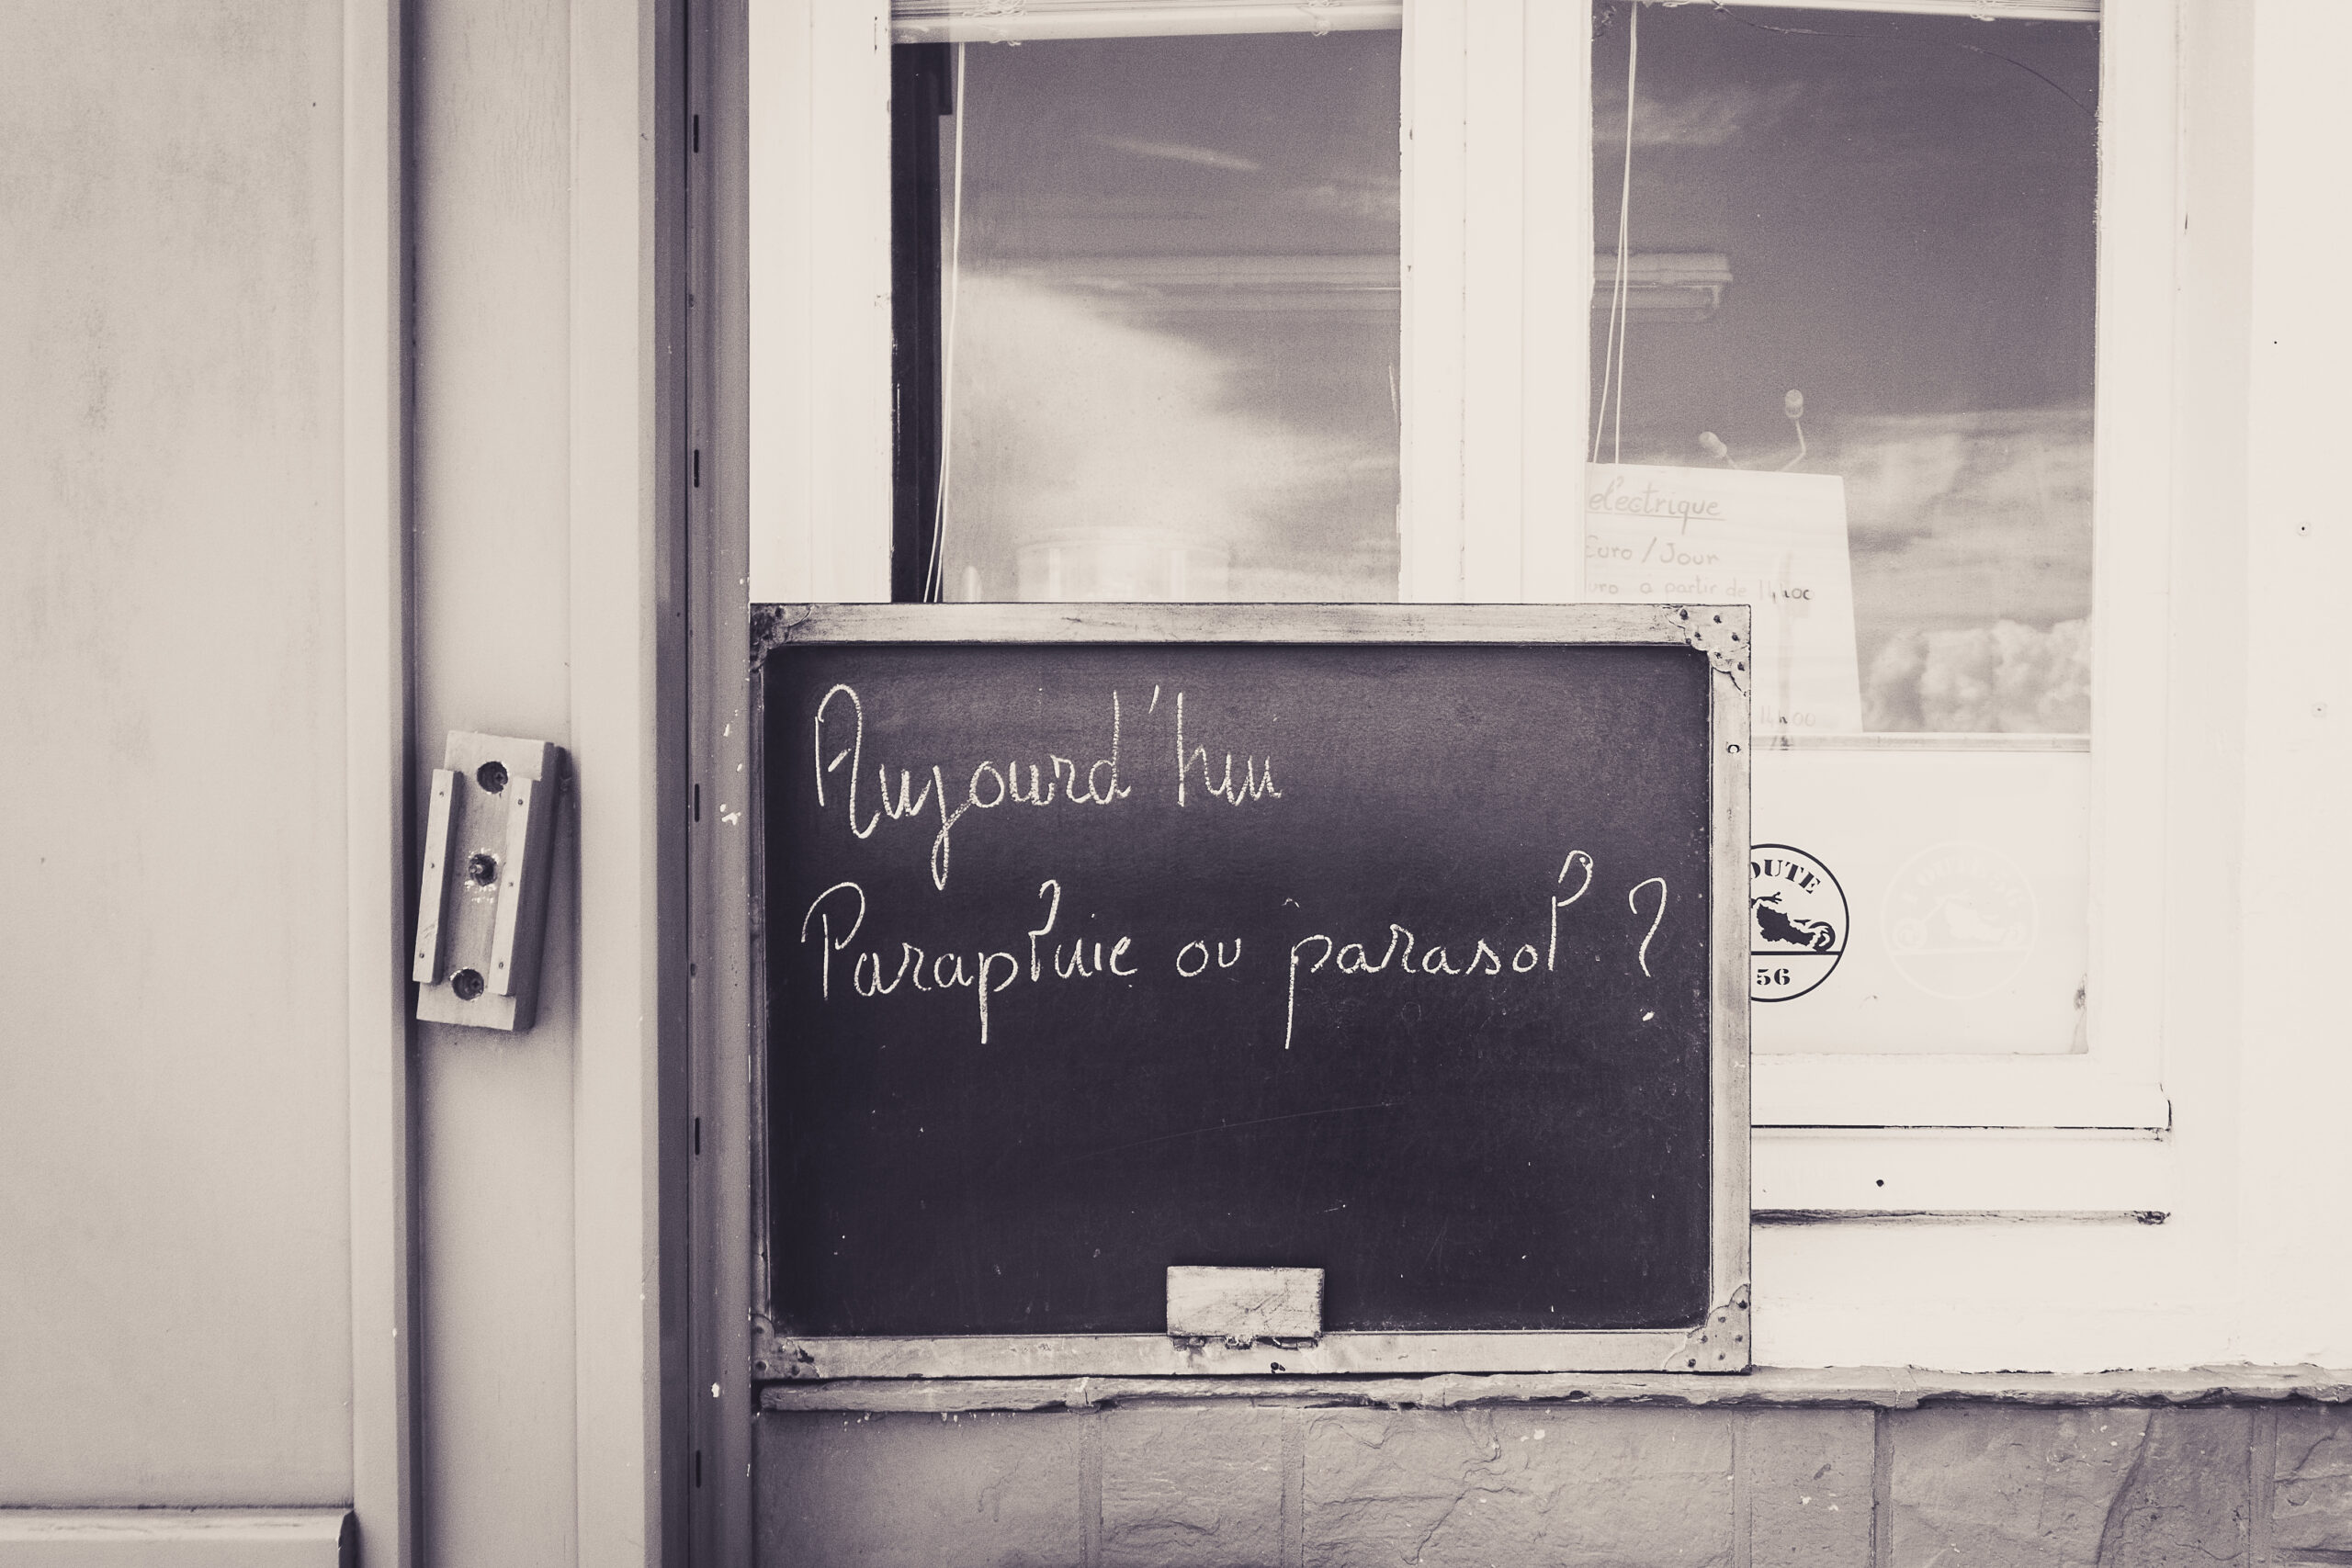 électrique
Euro / Jour
a partir de 14h00
14h00
Aujourd'hui
Parapluie ou parasol ?
OUTE
56